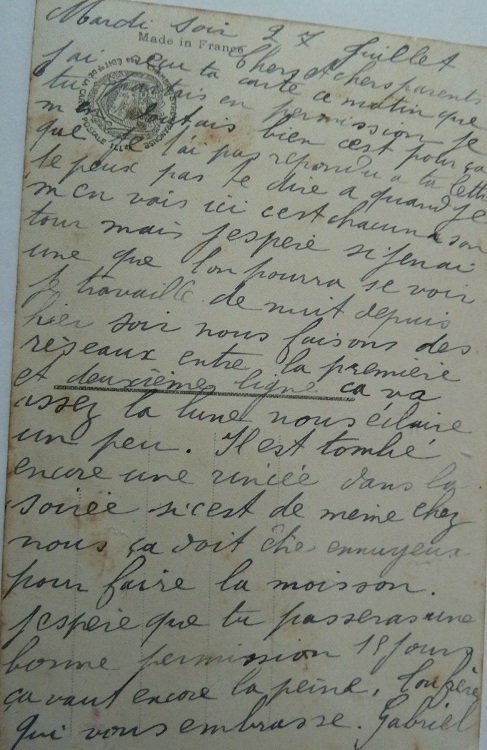 Mardi soir 27 Juillet
Made in France
Cher et chers parents
j'ai reçu ta carte ce matin que
tu partais en permission je
m'en doutais bien c'est pour ça
que je t'ai pas repondu a ta lettre
Je peux pas te dire a quand je
m'en vois ici c'est chacun a son
tour mais j'espère si j'en ai
une que l'on pourra se voir
je travaille de nuit depuis
hier soir nous faisons des
réseaux entre la première
et deuxièmes ligne ça va
assez la lune nous éclaire
un peu. Il est tombé
encore une rincée dans la
soirée si c'est de meme chez
nous ça doit être ennuyeux
pour faire la moisson.
J'espère que tu passeras une
bonne permission 15 jours
ça vaut encore la peine. Ton frère
qui vous embrasse. Gabriel